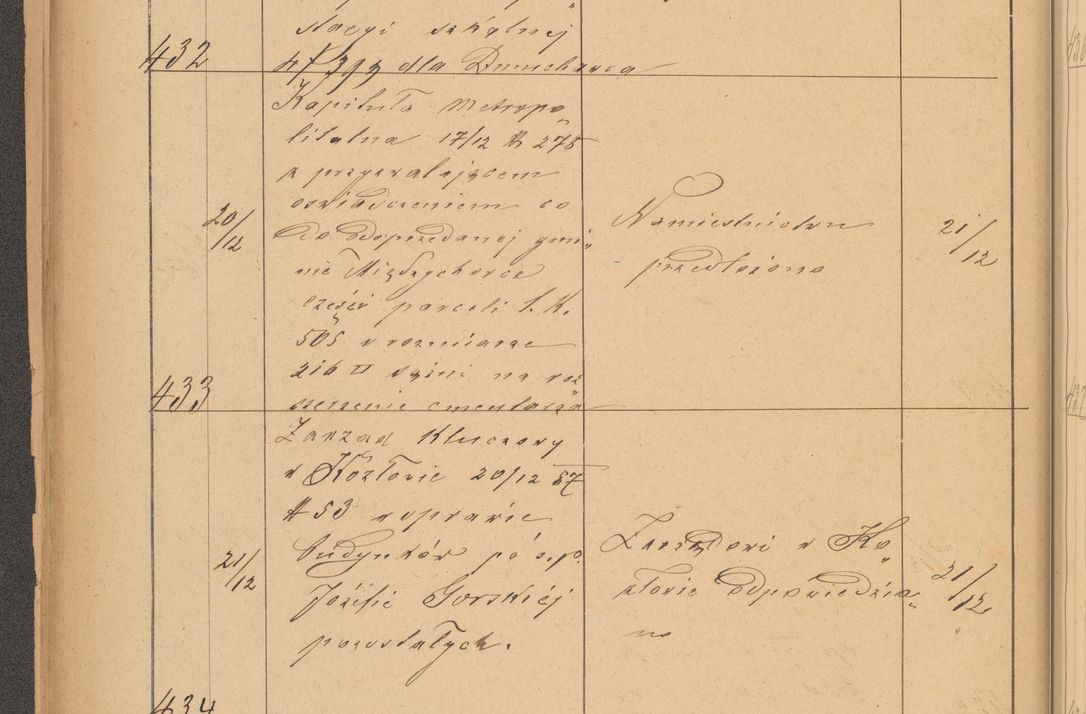 stacyi szkolnej
432
4/399 dla
Kapituła Metropo„
litalna 17/12 N 275
z przyzwalającem
oświadczeniem co
do odsprzedanej gmi„
20/12
nie
części parceli l. k.
505 w rozmiarze
216 □ sążni na roz„
szerzenie cmentarza
Namiestnictwu
przedłożono
21/12
433
Zarząd Kluczowy
w Kozłowie 20/12 87
N 53 w sprawie
budynków po ś. p.
Józefie Gorskiej
pozostałych.
21/12
Zarządowi w Ko„
złowie odpowiedzia„
no
21/12
434